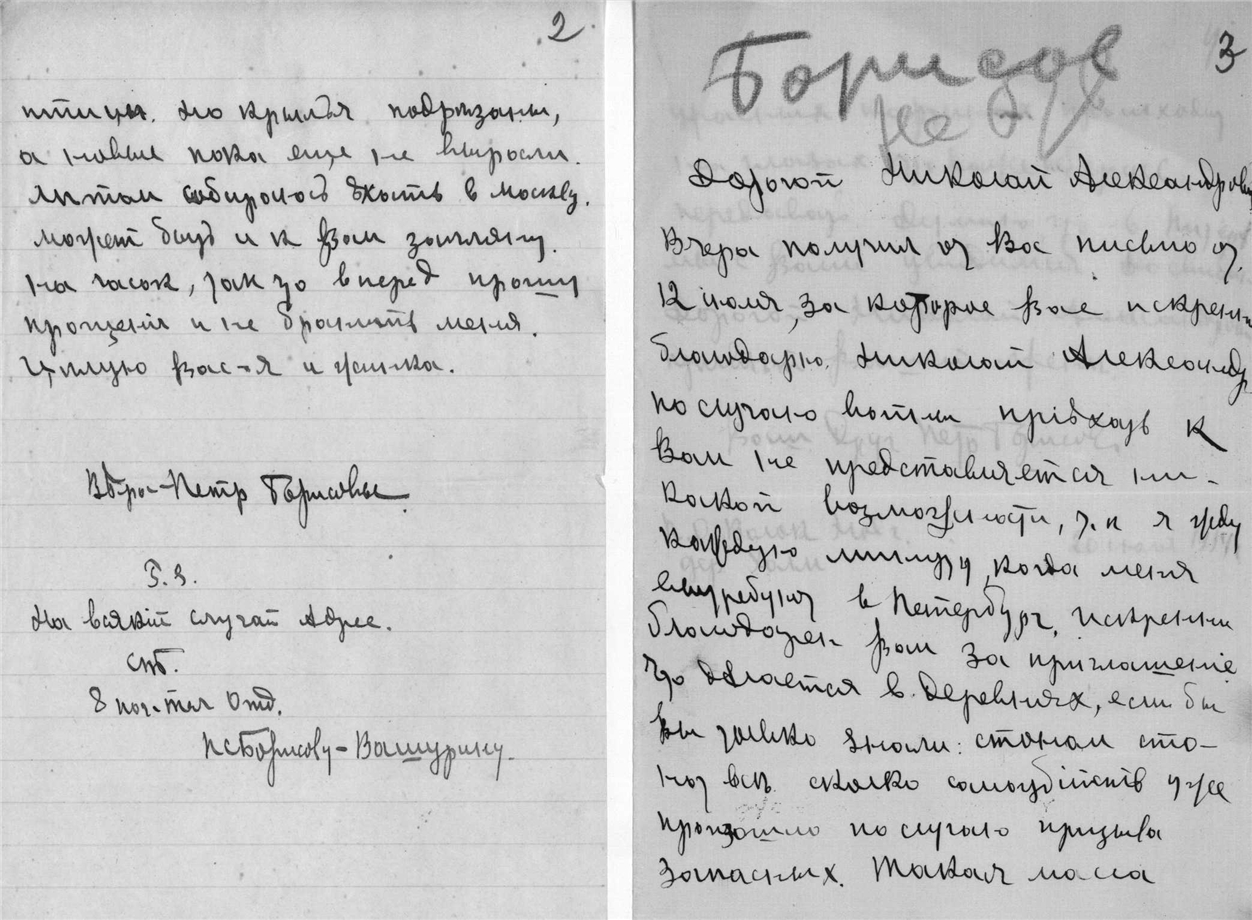 2
птицы. Но крылья подрѣзаны,
а новые пока еще не выросли.
Лѣтом собираюсь ѣхать в Москву.
может быть и к Вам загляну.
на часок, так что вперед прошу
прощенія и не бранить меня.
Цѣлую Вас-я и
Петр Борисовъ.
P.S.
На всякій случай Адрес.
СПБ.
8 почт Отд.
П С Борисову-Вашурину
3
Борисов
Дорогой Николай Александров
Вчера получил от Вас письмо от
12 июля, за которое Вас искрен
благодарю. Николай Александр
по случаю войны пріѣхать к
Вам не представляется ни-
какой возможности, т.к я жду
каждую минуту, когда меня
вытребуют в Петербург, искренни
благодарен Вам за приглашение
Что дѣлается в деревнях, если бы
вы только знали: стоном сто-
нут всѣ сколко самоубійств уже
произошло по случаю призыва
запасных. Такая масса